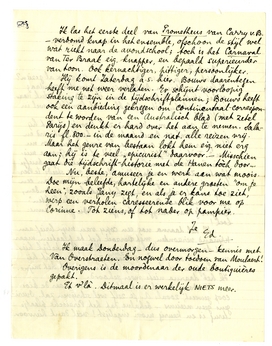 Ik las het eerste deel van Prometheus van Carry v. B.
verbond knap in het evenement, ofschoon de stijl wel
wat ziekt naar de avondschool; toch is het Carnaval
van Ter Braak eig. knapper, en bepaald superieurder
van toon. Ook eenvoudiger, pittiger, persoonlijker.
Hij komt Zaterdag a.s. hier. Bouws daarentegen
heeft me weer verlaten. Er schijnt voorloopig
staking te zijn in de tijdschriftplannen; Bouws heeft
ook een aanbieding gekregen om Continentaal correspon-
dent te worden van een Australisch blad (met zetel
Parijs) en denkt er hard over het aan te nemen. Sala-
ris fl. 800.- in de maand en nog alle reizen vrij.
Maar het genre van bestaan lokt hem eig. niet erg
aan; hij is te veel "speciaal" daarvoor. Misschien
gaat die tijdschrift-historie met de Haven toch door.
Nu, beste, amuseer je en werk aan wat moois.
Doe mijn beleefde, hartelijke en andere groeten "om je
heen", zooals Tony zegt, en als je er kans toe ziet,
werp een verholen caresseerende blik voor me op
Corinne. Tot ziens, of tot nader op papier.
Je
Ed
Ik maak Donderdag - dus overmorgen - kennis met
Van Overstraeten. En nogwel door toedoen van Moulaert!
Overigens is de moordenaar des oude boutiquières
gepakt.
Et v'là. Ditmaal is er werkelijk NIETS meer.